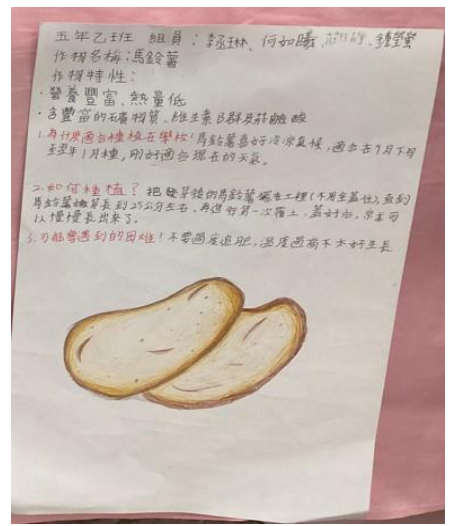 五年乙班 組員： 琳、何如曦、鍾瑩
作物名稱：馬鈴薯
作物特性：
·營養豐富、熱量低
·含豐富的礦物質、維生素B群及菸鹼酸
1.為什麼適合種植在學校！馬鈴薯喜好冷涼氣候，適合在9月下旬
至翌年1月種，剛好適合現在的天氣。
2.如何種植？把發芽後的馬鈴薯埋在土裡(不用全蓋住)，直到
馬鈴薯嫩葉長到25公分左右，再進行第一次覆土，蓋好後，就可
以慢慢長出來了。
3.可能會遇到的困難！不要過度追肥，溫度過高不太好生長